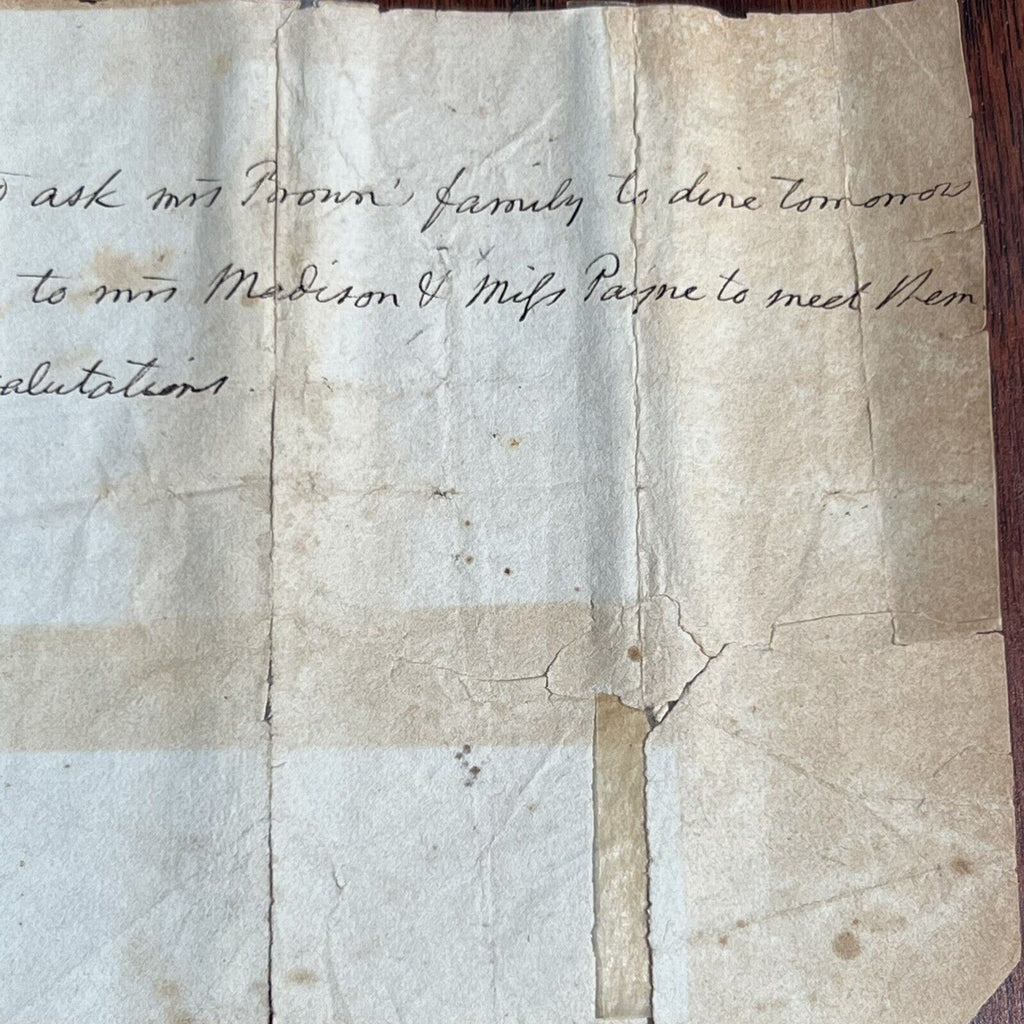 ask mrs Brown's family to dine tomorrow
to mrs Madison & Miss Payne to meet them
alutations.